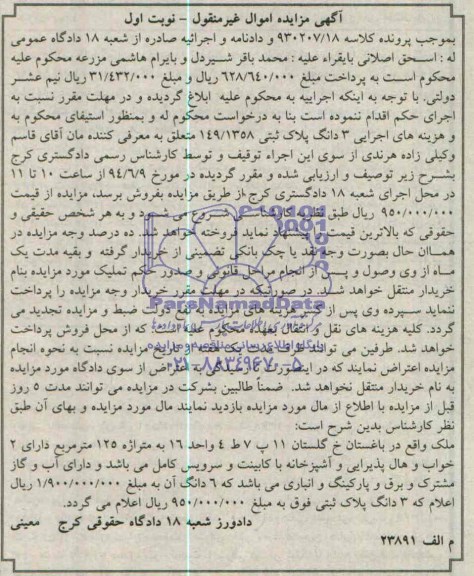 آگهی مزایده اموال غیرمنقول - نوبت اول
بموجب پرونده کلاسه ۹۳۰۲۰۷/۱۸ و دادنامه و اجرائیه صادره از شعبه ۱۸ دادگاه عمومی
له : اسـحق اصلانی بایقراء علیه : محمد باقر شـیردل و بایرام هاشمی مزرعه محکوم علیه
محکوم اسـت به پرداخت مبلغ ۶۲۸/۶۴۰/۰۰۰ ریال و مبلغ ۳۱/۴۳۲/۰۰۰ ریال نیم عشـر
دولتی. با توجه به اینکه اجراییه به محکوم علیه ابلاغ گردیده و در مهلت مقرر نسبت به
اجرای حکم اقدام ننموده است بنا به درخواست محکوم له و بمنظور استیفای محکوم به
و هزینه های اجرایی ۳ دانگ پلاک ثبتی ۱۴۹/۱۳۵۸ متعلق به معرفی کننده مان آقای قاسم
وکیلی زاده هرندی از سوی این اجراء توقیف و توسط کارشناس رسمی دادگستری کرج
بشـرح زیر توصیف و ارزیابی شده و مقرر گردیده در مورخ ۹۴/۶/۹ از ساعت ۱۰ تا ۱۱
در محل اجرای شعبه ۱۸ دادگستری کرج از طریق مزایده بفروش برسد، مزایده از قیمت
۹۵۰/۰۰۰/۰۰۰ ریال طبق نظریه کارشناسی شروع می شـود و به هر شخص حقیقی و
حقوقی که بالاترین قیمت را پیشنهاد نماید فروخته خواهد شد. ده درصد وجه مزایده در
همـان حال بصورت وجه نقد یا چک بانکی تضمینی از خریدار گرفته و بقیه مدت یک
مـاه از وی وصول و پـس از انجام مراحل قانونی و صدور حکم تملیک مورد مزایده بنام
خریدار منتقل خواهد شـد. در صورتیکه در مهلت مقرر خریدار وجه مزایده را پرداخت
ننماید سـپرده وی پس از کسر هزینه های مزایده به نفع دولت ضبط و مزایده تجدید می
گردد. کلیه هزینه های نقل و انتقال بعهده محکوم علیه است که از محل فروش پرداخت
خواهد شد. طرفین می توانند ظرف مدت یک هفته از تاریخ مزایده نسبت به نحوه انجام
مزایده اعتراض نمایند که در اینصورت تا رسیدگی به اعتراض از سوی دادگاه مورد مزایده
به نام خریدار منتقل نخواهد شد. ضمناً طالبین بشرکت در مزایده می توانند مدت ۵ روز
قبل از مزایده با اطلاع از مال مورد مزایده بازدید نمایند مال مورد مزایده و بهای آن طبق
نظر کارشناس بدین شرح است:
ملک واقع در باغستان خ گلستان ۱۱ پ ۷ ط ۴ واحد ۱۶ به متراژه ۱۲۵ مترمربع دارای ۲
خواب و هال پذیرایی و آشپزخانه با کابینت و سرویس کامل می باشد و دارای آب و گاز
مشترک و برق و پارکینگ و انباری می باشد که ۶ دانگ آن به مبلغ ۱/۹۰۰/۰۰۰/۰۰۰ ریال
اعلام که ۳ دانگ پلاک ثبتی فوق به مبلغ ۹۵۰/۰۰۰/۰۰۰ ریال اعلام می گردد.
دادورز شعبه ۱۸ دادگاه حقوقی کرج معینی
م الف ۲۳۸۹۱
ParsNamadData
۰۲۱-۸۸۳۴۹۶۷۰-۵